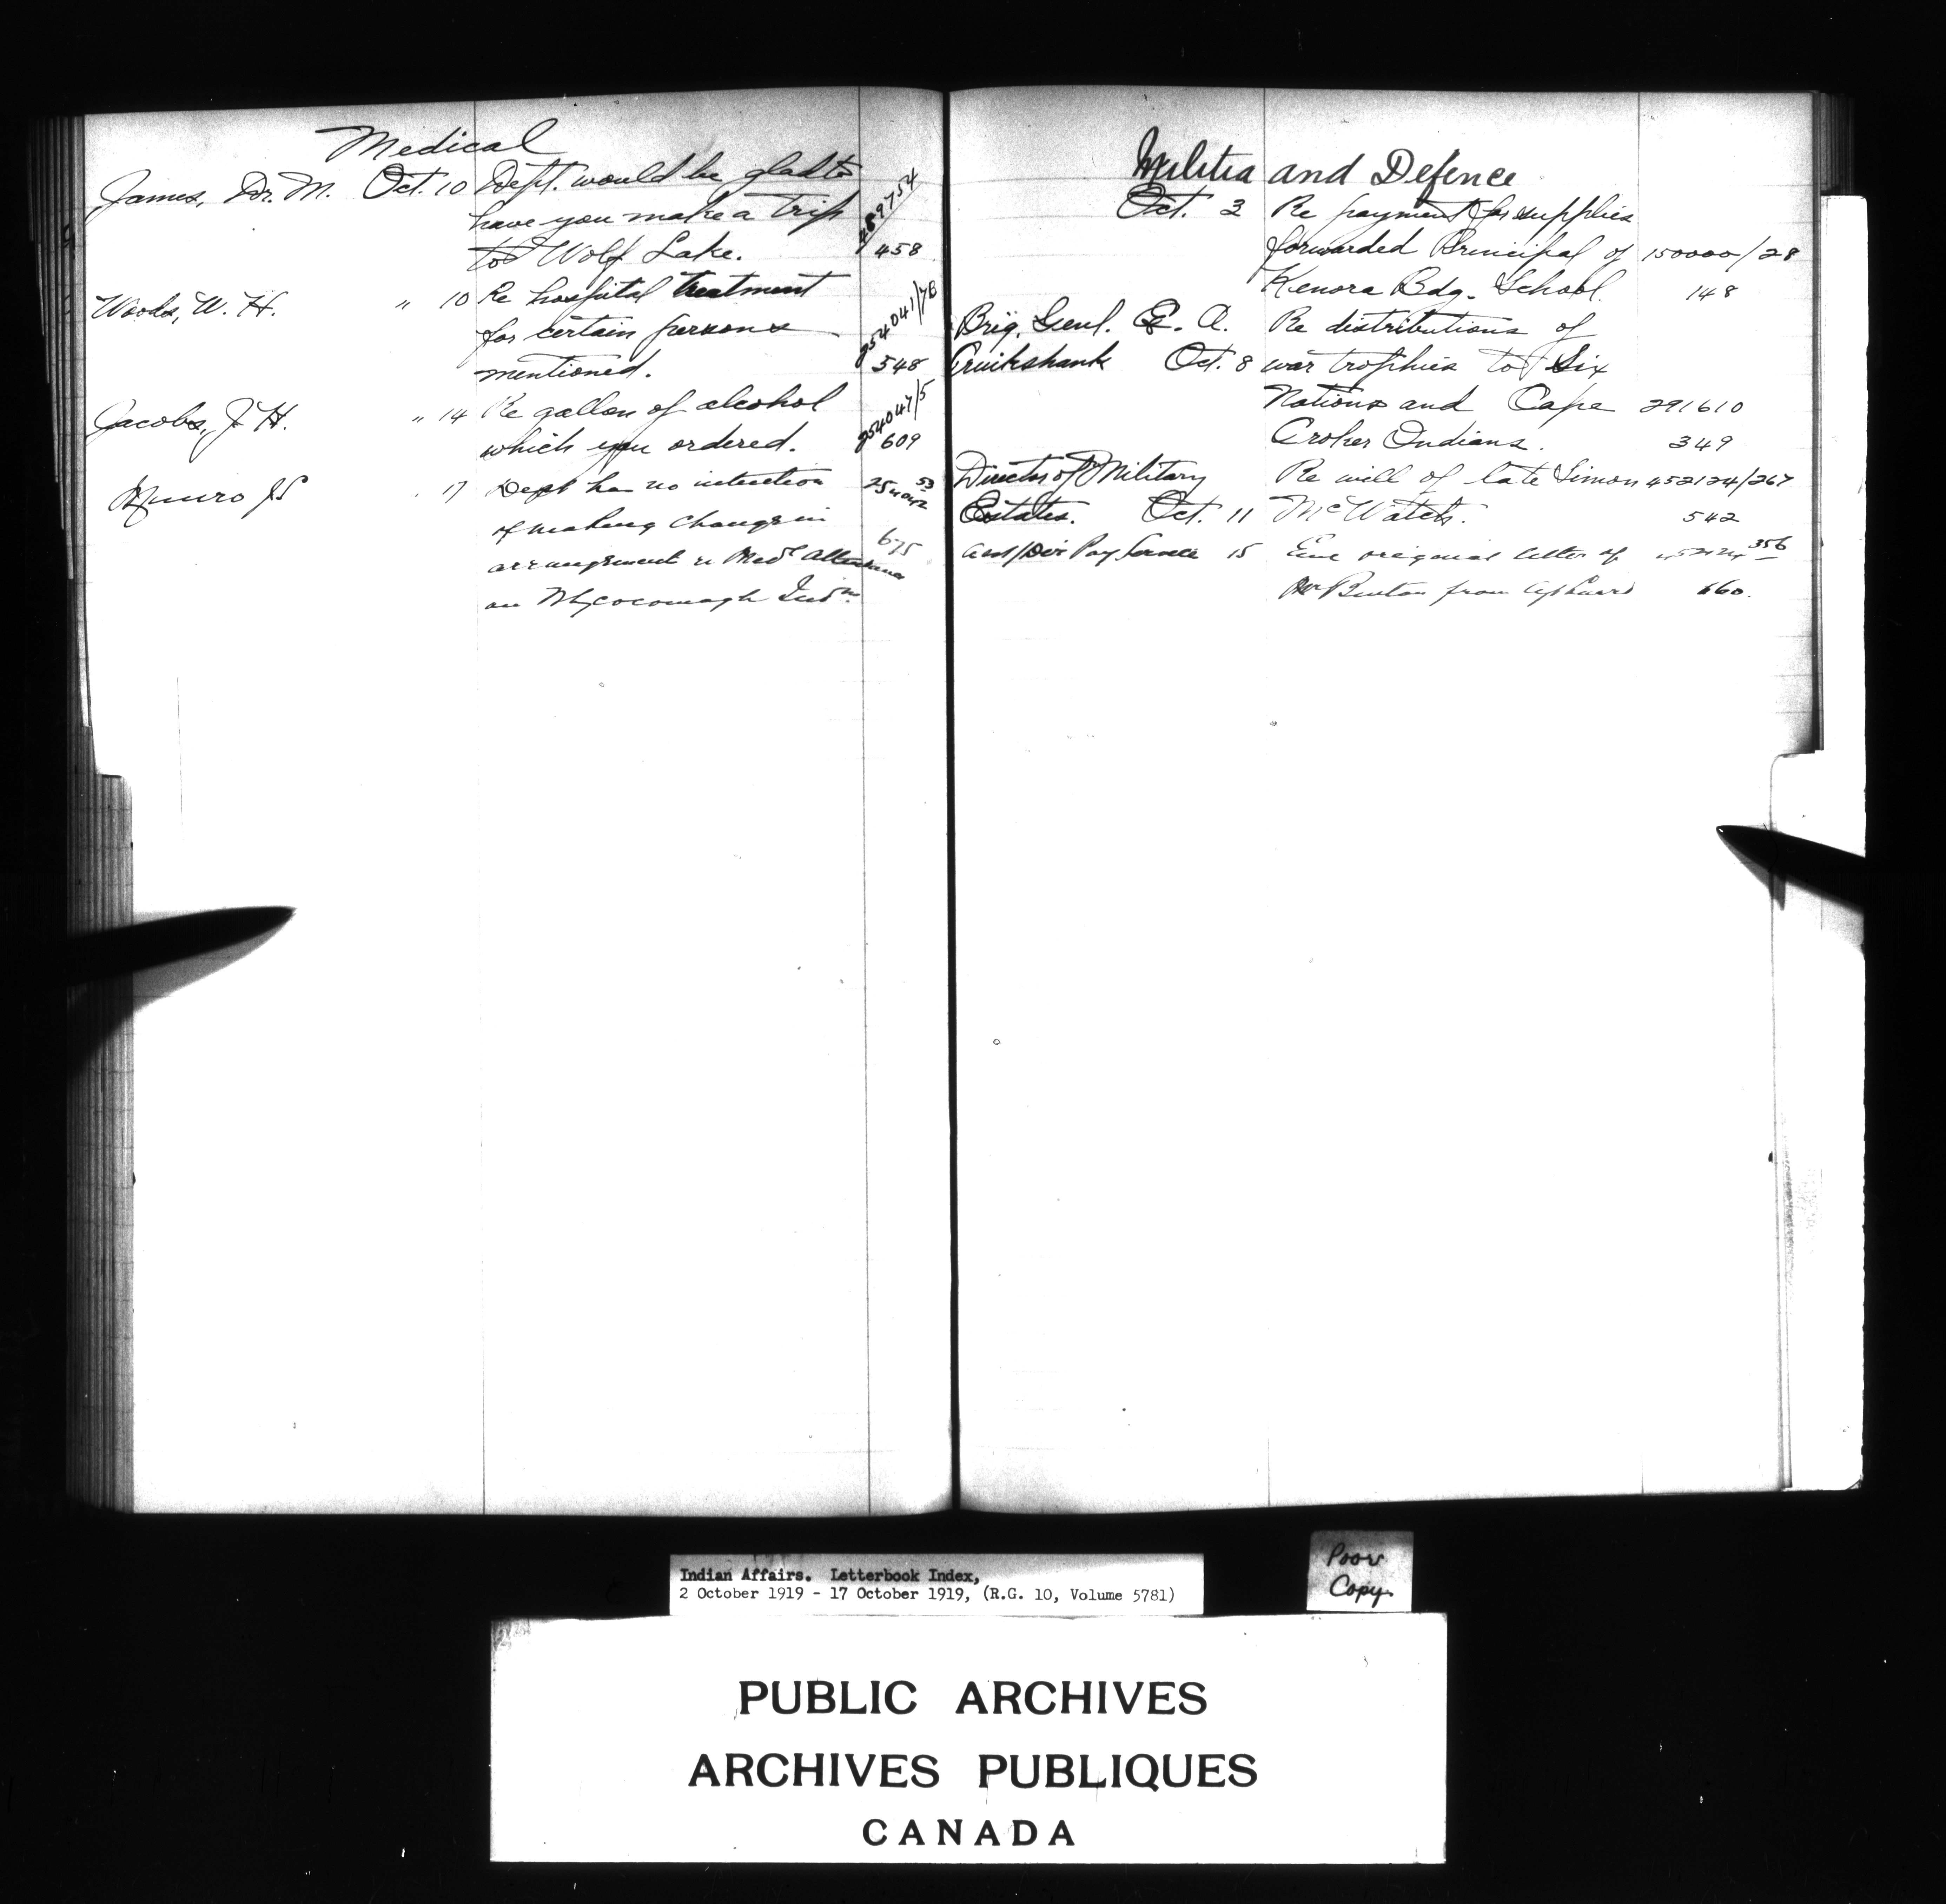 Medical
James, Dr. M. Oct. 10 Dept. would be glad to
have you make a trip
to Wolf Lake. 458
Woods, W. H. " 10 Re hospital treatment 254041/78
for certain persons
mentioned. 548
Jacobs, J. H. " 14 Re gallon of alcohol 254047/5
which you ordered. 609
Munro J S 17 Dept has no intention
of making change in 675
arrangement re Medl attendance
on Whycocomagh Indns.
Militia and Defence
Oct. 3 Re payment for supplies
forwarded Principal of 150000/28
Kenora Bdg. School. 148
Brig. Genl. E. A. Re distributions of
Cruikshank Oct. 8 war trophies to Six
Nations and Cape 291610
Croker Indians. 349
Director of Military Re will of late Simon 452124/267
Estates. Oct. 11 McWatch. 542
Pay Service 15 original letter of 356
from 660.
Indian Affairs. Letterbook Index,
2 October 1919 - 17 October 1919, (R.G. 10, Volume 5781)
Poor
Copy
PUBLIC ARCHIVES
ARCHIVES PUBLIQUES
CANADA